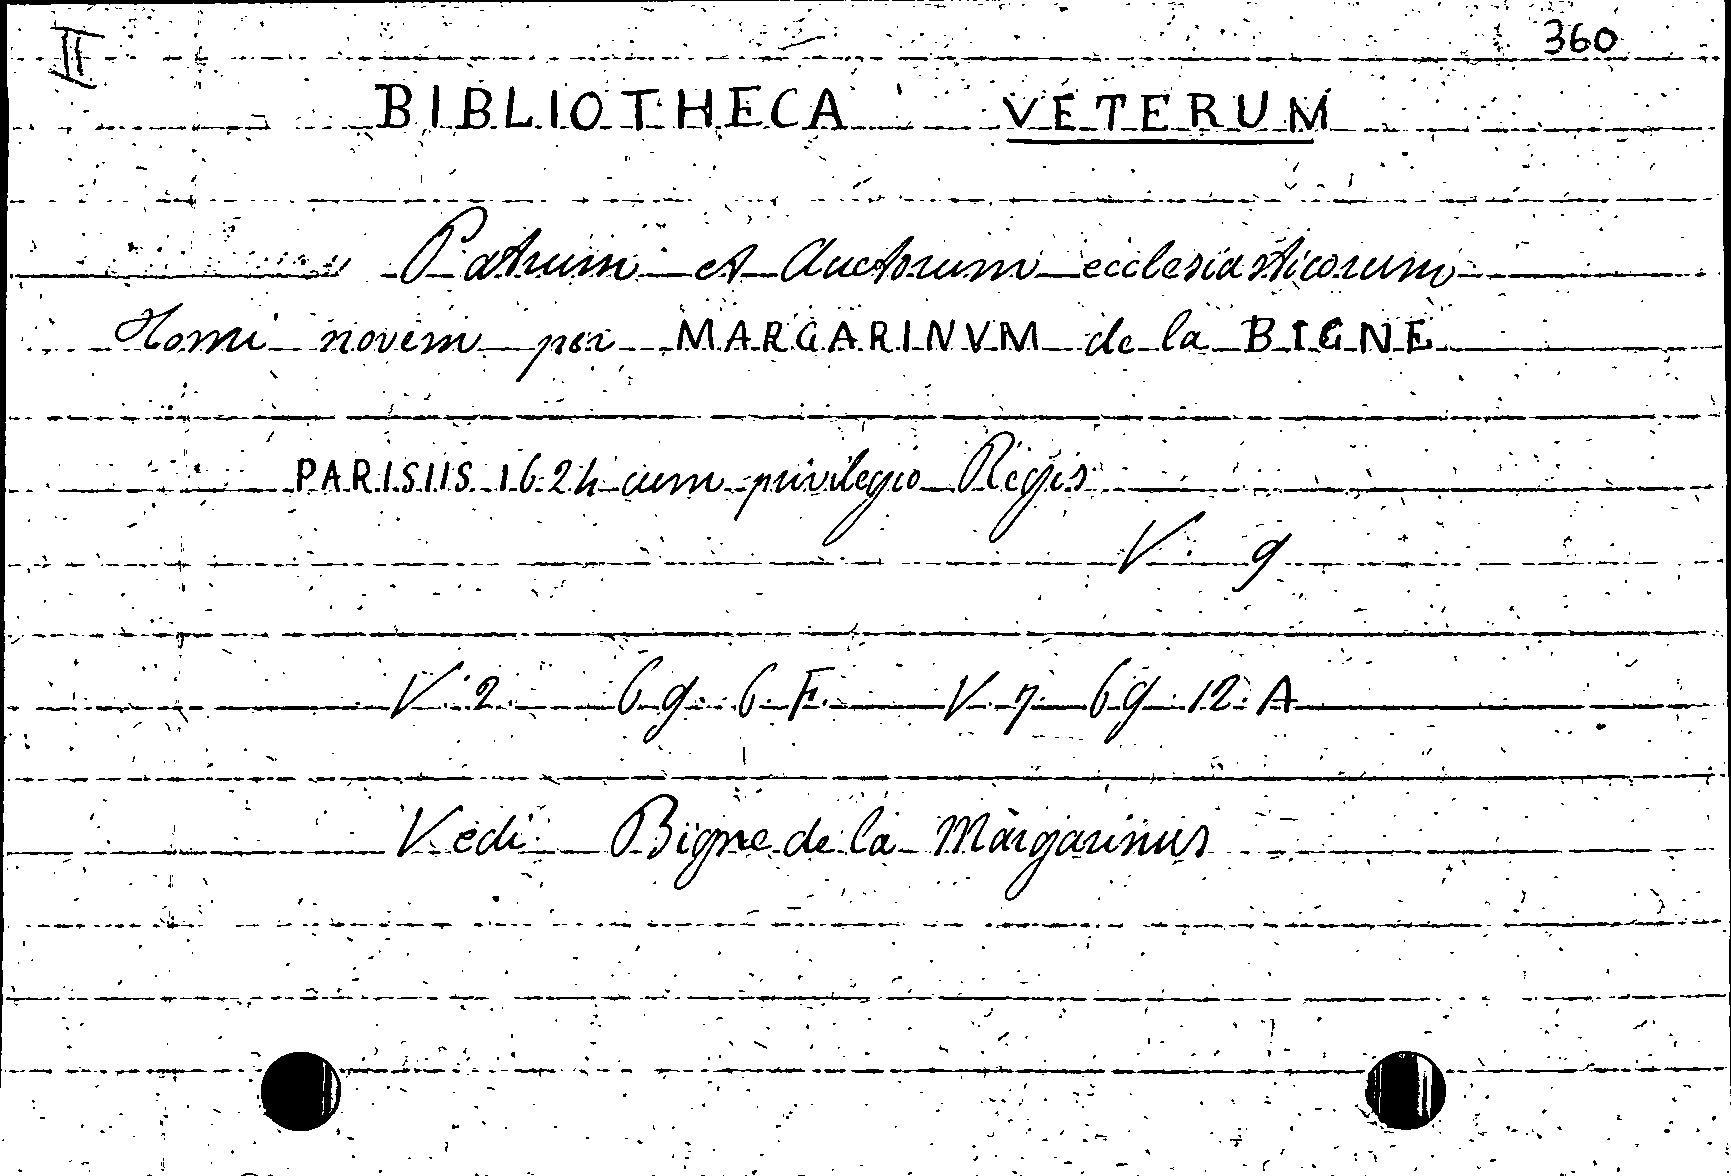 II 360
BIBLIOTHECA VETERUM
Patrum et Auctorum ecclesiasticorum
Tomi novem per MARGARINVM de la BIGNE
PARISIIS 1624 cum privilegio Regis
V. 9
V. 2 69. 6. F. V. 7. 69. 12. A
Vedi Bigne de la Margarinus